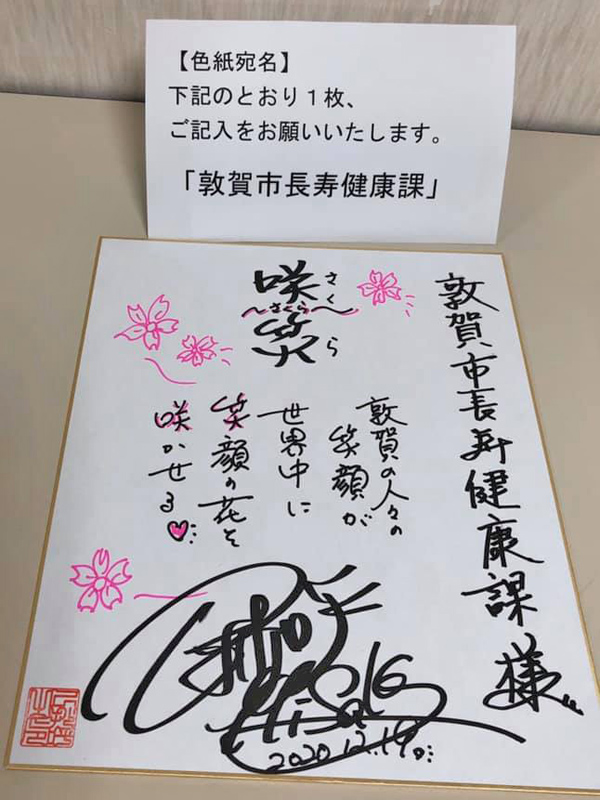 【色紙宛名】
下記のとおり1枚、
ご記入をお願いいたします。
「敦賀市長寿健康課」
敦賀市長寿健康課 様
咲笑
さくら
～さくら～
敦賀の人々の
笑顔が
世界中に
笑顔の花を
咲かせる
2020.12.19